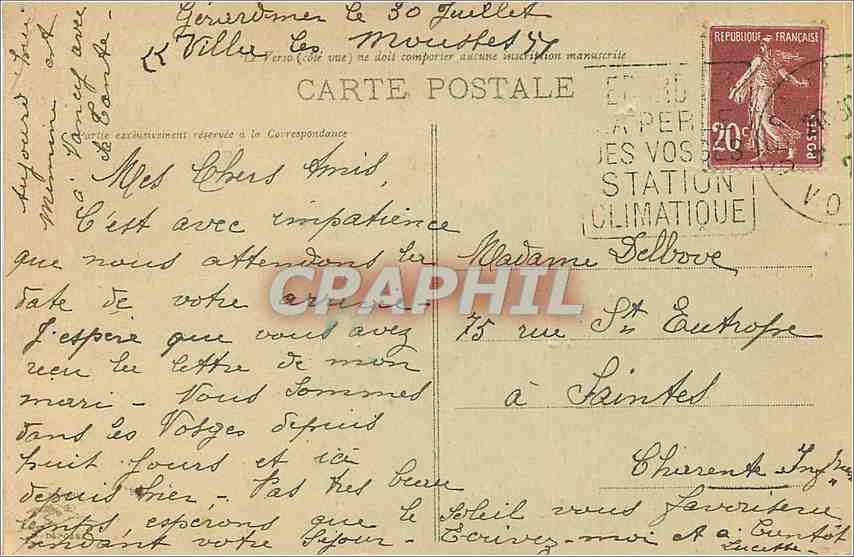 Gérardmer le 30 Juillet
"Villa les Mousses"
Le Verso (côté vue) ne doit comporter aucune inscription manuscrite
CARTE POSTALE
Partie exclusivement réservée à la Correspondance
Aujourd'hui
Mémène est
à Nancy avec
sa Tante -
RÉPUBLIQUE FRANÇAISE
20c
POSTES
LA PERLE
DES VOSGES
STATION
CLIMATIQUE
Mes Chers Amis,
C'est avec impatience
que nous attendons la
date de votre arrivée -
J'espère que vous avez
reçu la lettre de mon
mari - Nous sommes
dans les Vosges depuis
huit jours et ici
depuis hier, - Pas très beau
temps, espérons que le soleil vous favorisera
pendant votre séjour - Écrivez-moi et à bientôt
Lucette -
Madame Delbove
75 rue St Eutrope
à Saintes
Charente Infre
CPARHIL